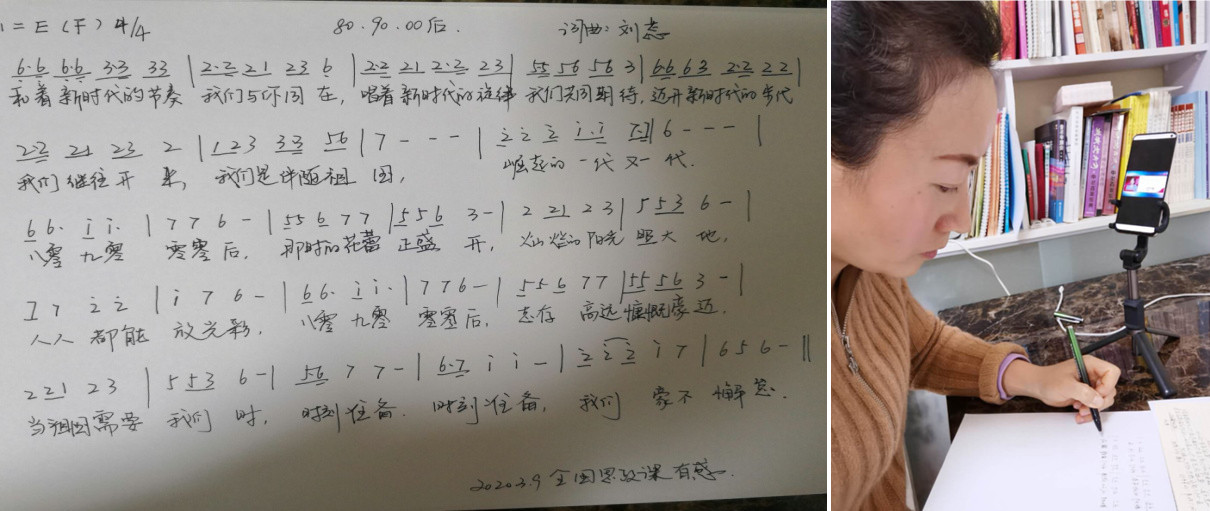 1=E(F) 4/4 80.90.00后. 词曲:刘蕊
6·6 6·6 3·3 33 | 2·2 21 23 6 | 2·2 21 2·2 23 | 55 56 56 3 | 66 63 2·2 22 |
和着新时代的节奏 我们与你同在, 唱着新时代的旋律 我们共同期待, 迈开新时代的步伐
2·2 21 23 2 | 123 33 56 | 7 - - - | 2 2 2 i·i 7·7 | 6 - - - |
我们继往开来, 我们是伴随祖国, 崛起的一代又一代.
66· ii· | 776- | 55 6 77 | 556 3- | 2 21 23 | 553 6- |
八零九零 零零后, 那时的花蕾正盛开, 灿烂的阳光照大地,
77 22 | i76- | 66· ii· | 776- | 556 77 | 55 56 3- |
人人都能放光彩, 八零九零 零零后, 志存高远慷慨豪迈,
221 23 | 553 6- | 56 77- | 6·7 ii- | 222 i7 | 656- ||
当祖国需要我们时, 时刻准备. 时刻准备, 我们毫不懈怠.
2020.3.9 全国思政课有感.